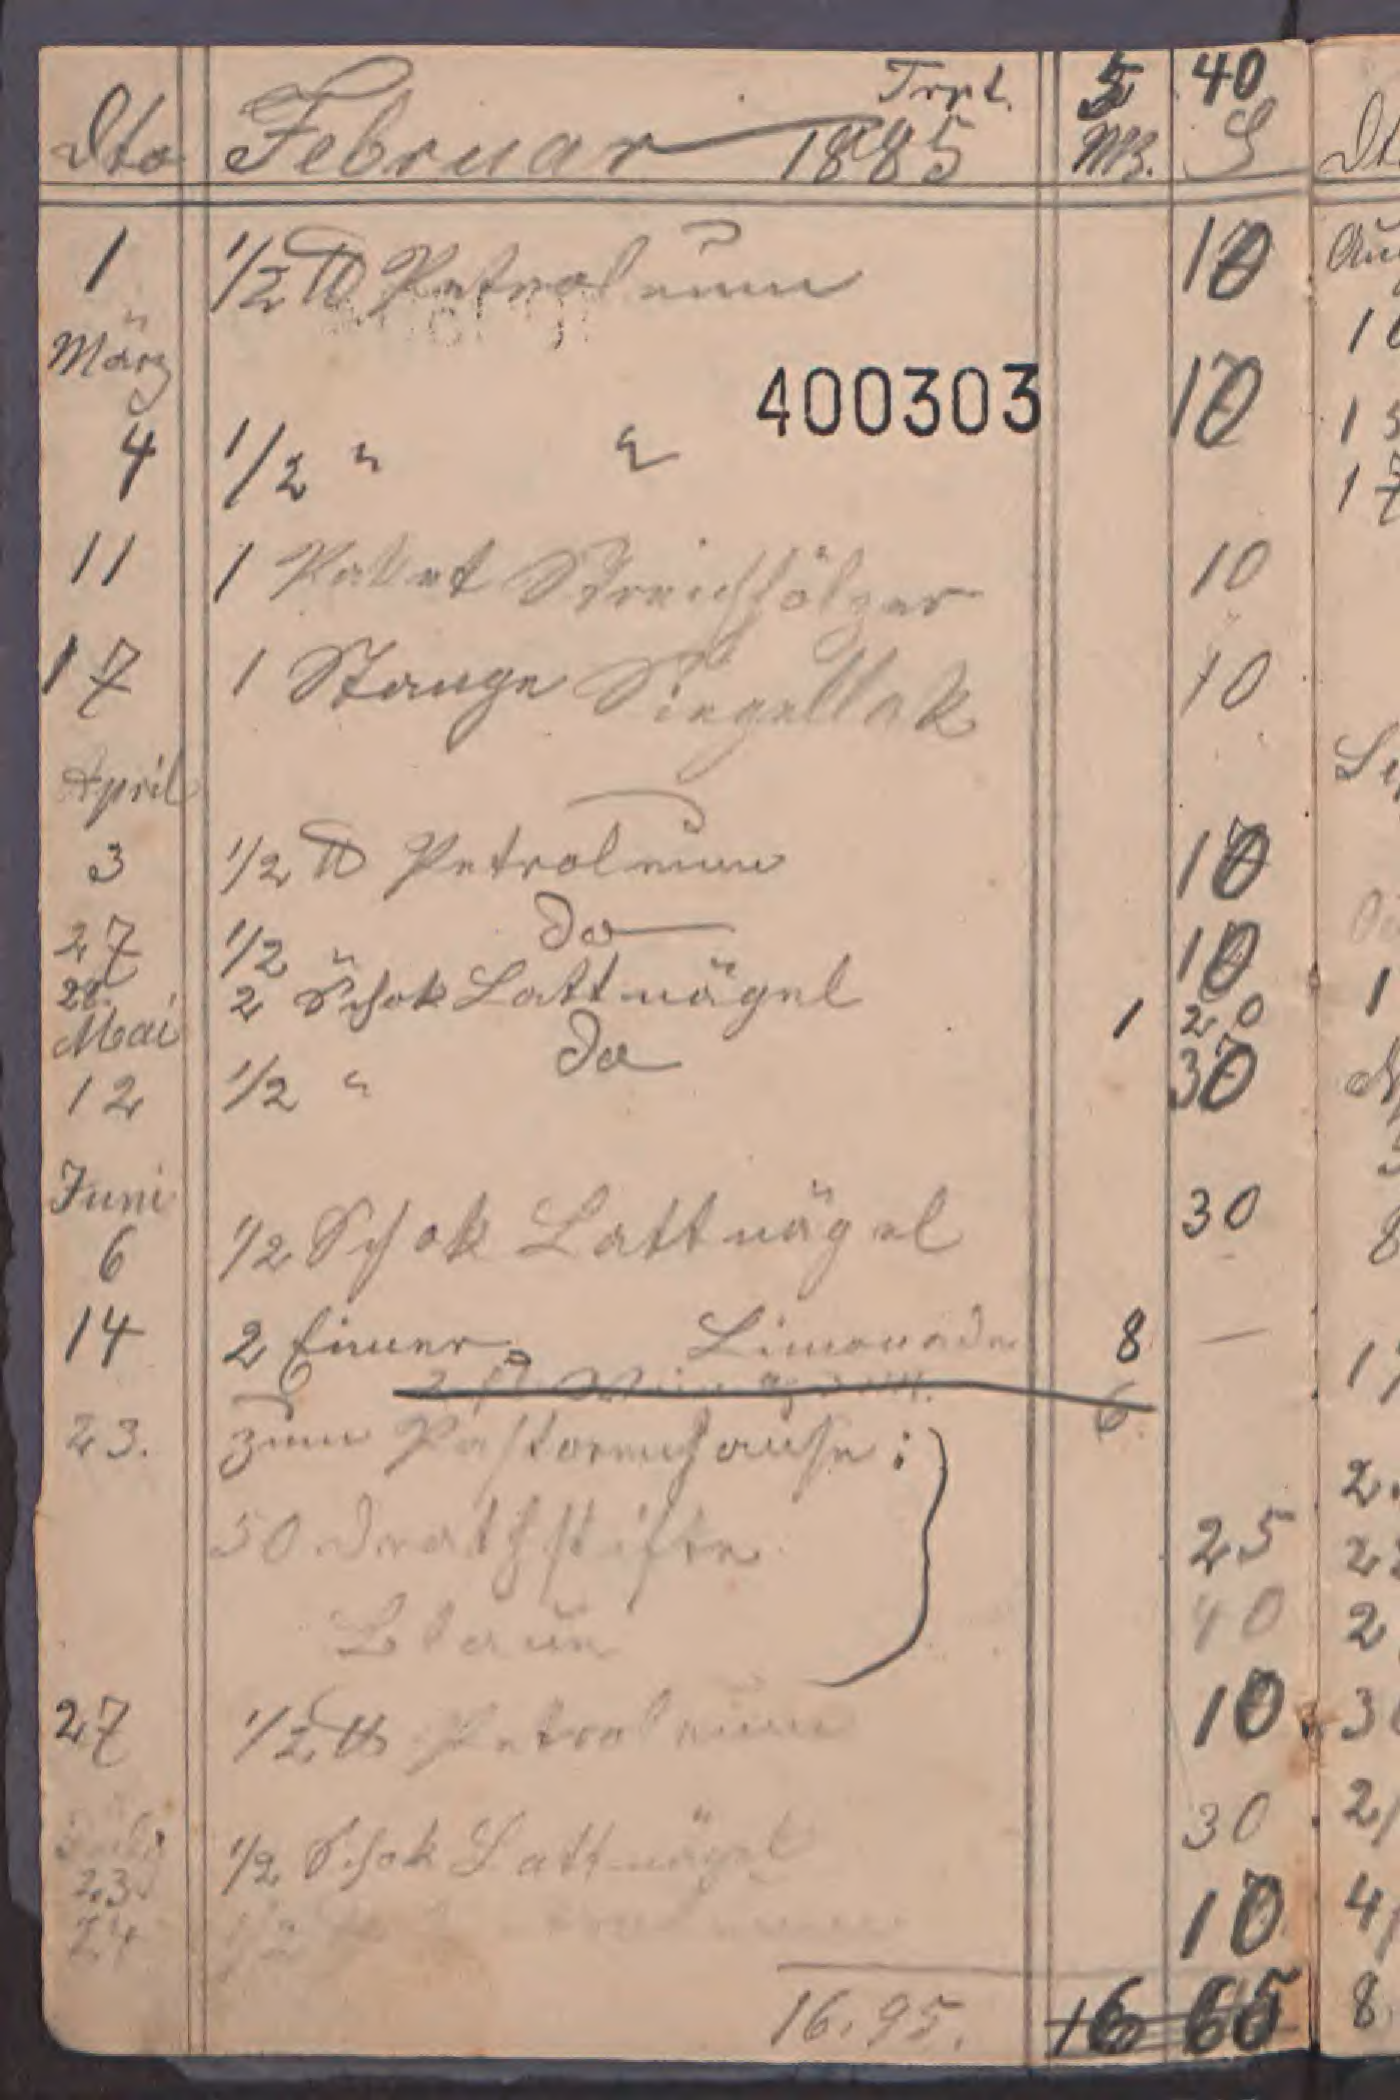 Trpt. 5 40
Dto Februar 1885 Mk. ₰
1 1/2 ℔ Petroleum 10
März
400303
4 1/2 " " 10
11 1 Paket Streichhölzer 10
17 1 Stange Siegellak 10
April
3 1/2 ℔ Petroleum 10
27 1/2 " do 10
28. 2 Schok Lattnägel 1 20
Mai
12 1/2 " do 30
Juni
6 1/2 Schok Lattnägel 30
14 2 Eimer Limonade 8 —
6
23. zum Pastorenhause:
50 Drathstifte 25
40
27 1/2 ℔ Petroleum 10
Juli
23 1/2 Schok Lattnägel 30
24 1/2 ℔ Petroleum 10
16.95. 16